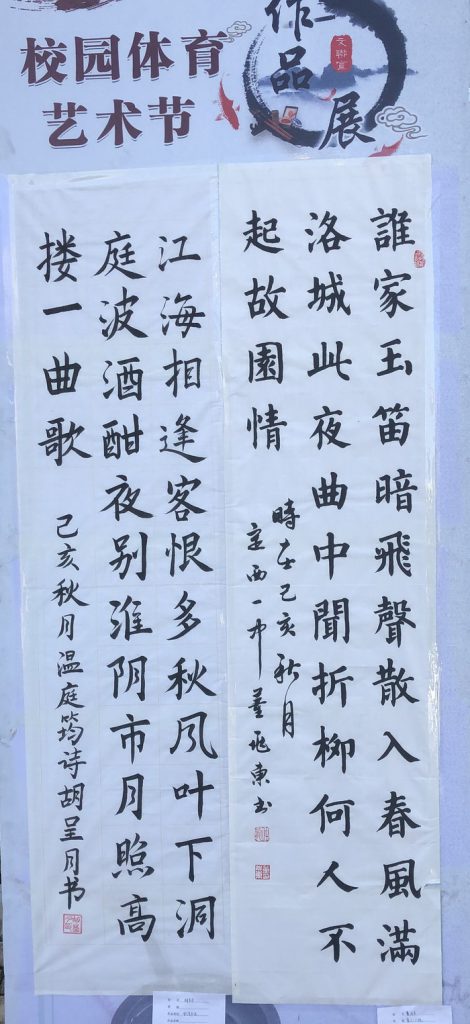 校园体育
艺术节
作品
展
誰家玉笛暗飛聲散入春風滿
洛城此夜曲中聞折柳何人不
起故園情
時在己亥秋月
定西一中董飛東书
江海相逢客恨多秋风叶下洞
庭波酒酣夜别淮阴市月照高
搂一曲歌
己亥秋月温庭筠诗胡呈月书